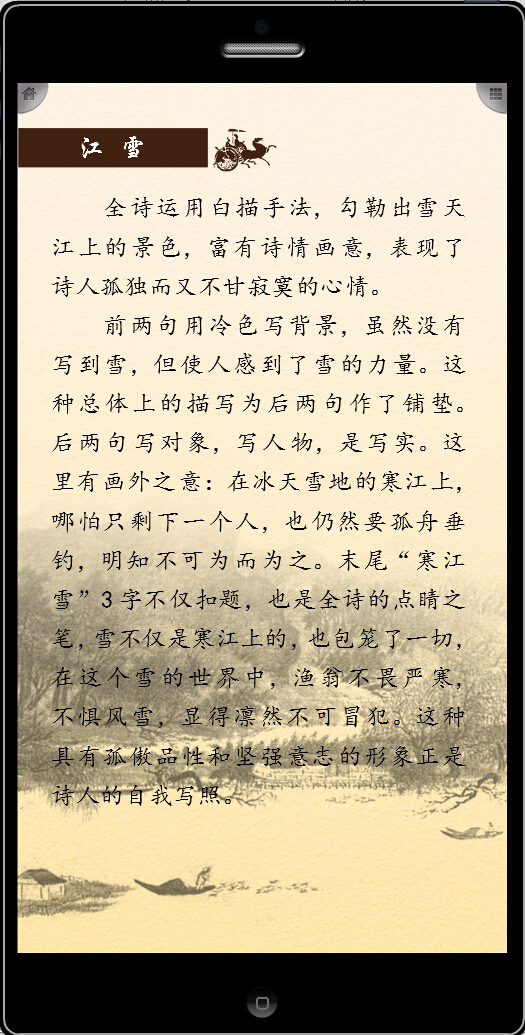 江雪
全诗运用白描手法，勾勒出雪天
江上的景色，富有诗情画意，表现了
诗人孤独而又不甘寂寞的心情。
前两句用冷色写背景，虽然没有
写到雪，但使人感到了雪的力量。这
种总体上的描写为后两句作了铺垫。
后两句写对象，写人物，是写实。这
里有画外之意：在冰天雪地的寒江上，
哪怕只剩下一个人，也仍然要孤舟垂
钓，明知不可为而为之。末尾“寒江
雪”3字不仅扣题，也是全诗的点睛之
笔，雪不仅是寒江上的，也包笼了一切，
在这个雪的世界中，渔翁不畏严寒，
不惧风雪，显得凛然不可冒犯。这种
具有孤傲品性和坚强意志的形象正是
诗人的自我写照。